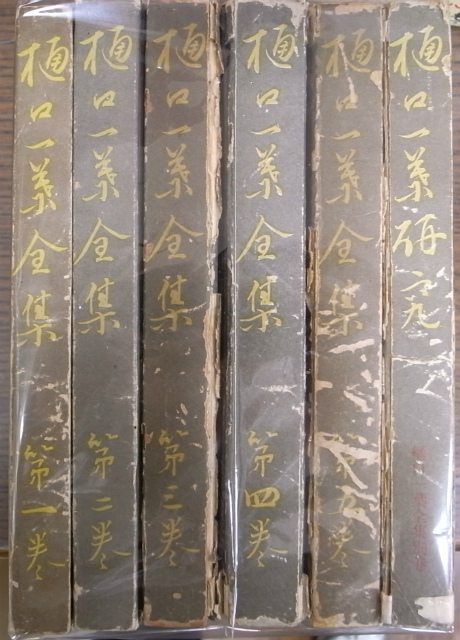 樋口一葉全集 第一巻
樋口一葉全集 第二巻
樋口一葉全集 第三巻
樋口一葉全集 第四巻
樋口一葉全集 第五巻
樋口一葉研究